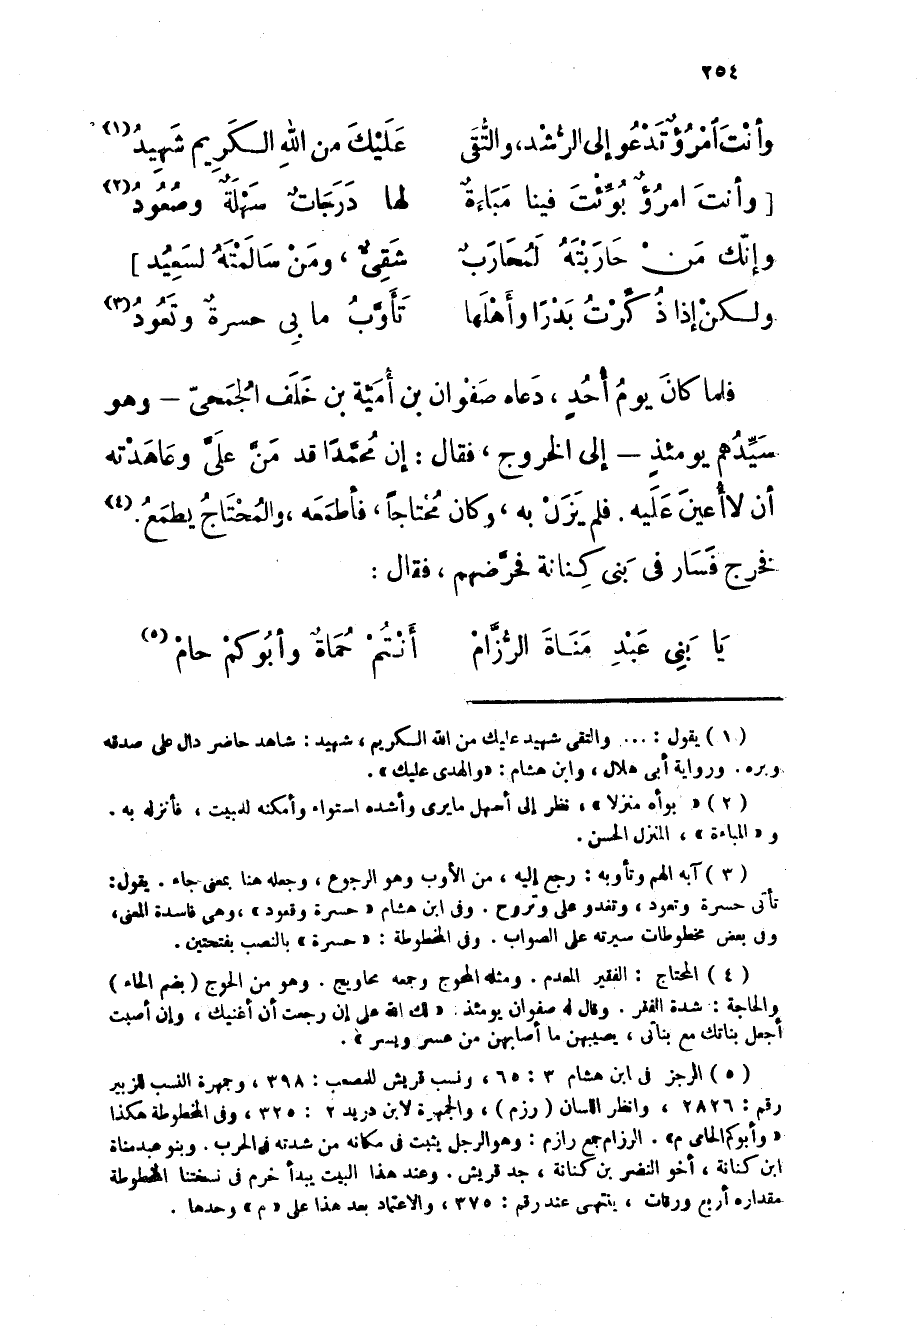 ٢٥٤
وأنْتَ امْرُؤٌ تَدْعُو إلى الرُّشْد، والتُّقَى عَلَيْكَ من اللهِ الكَرِيمِ شَهِيدُ (١)
[ وأنتَ امرُؤٌ بُوِّئْتَ فينا مَبَاءةً لها دَرَجَاتٌ سَهْلَةٌ وصُعُودُ (٢)
وإنّك مَنْ حَارَبْتَهُ لَمُحَارَبٌ شَقِىٌّ ، ومَنْ سَالَمْتَهُ لسَعِيُد ]
ولكنْ إذا ذُكِّرْتُ بَدْرًا وأَهْلَها تَأَوَّبُ ما بِى حسرةٌ وتَعُودُ (٣)
فلما كانَ يومُ أُحُدٍ ، دَعاه صَفْوان بن أُمَيَّة بن خَلَف الجُمَحىّ — وهو
سَيِّدُهم يومئذٍ — إلى الخروج ، فقال : إن مُحمَّدًا قد مَنَّ علَىَّ وعَاهَدْته
أن لا أُعينَ عَلَيه . فلم يَزَلْ به ، وكان مُحْتاجاً ، فأطمَعَه ، والمُحْتَاجُ يطمَعُ . (٤)
فخرج فَسَار فى بَنى كِنانة فحرَّضهم ، فقال :
يَا بَنِى عَبْدِ مَنَاةَ الرُّزَّامْ أَنْتُمْ حُمَاةٌ وأبُوكمْ حامْ (٥)
( ١ ) يقول : ... والتقى شهيد عليك من الله الكريم ، شهيد : شاهد حاضر دال على صدقه
وبره . ورواية أبى هلال ، وابن هشام : «والهدى عليك» .
( ٢ ) « بوأه منزلا » ، نظر إلى أسهل مايرى وأشده استواء وأمكنه لمبيت ، فأنزله به .
و « المباءة » ، المنزل الحسن .
( ٣ ) آبه الهم وتأوبه : رجع إليه ، من الأوب وهو الرجوع ، وجعله هنا بمعنى جاء . يقول :
تأتى حسرة وتعود ، وتغدو على وتروح . وفى ابن هشام « حسرة وقعود » ، وهى فاسدة المعنى ،
وفى بعض مخطوطات سيرته على الصواب . وفى المخطوطة : « حسرة » بالنصب بفتحتين .
( ٤ ) المحتاج : الفقير المعدم . ومثله المحوج وجمعه محاويج . وهو من الحوج ( بضم الحاء )
والحاجة : شدة الفقر . وقال له صفوان يومئذ : « لك الله على إن رجعت أن أغنيك ، وإن أصبت
أجعل بناتك مع بناتى ، يصيبهن ما أصابهن من عسر ويسر » .
( ٥ ) الرجز فى ابن هشام ٣ : ٦٥ ، ونسب قريش للمصعب : ٣٩٨ ، وجمهرة النسب للزبير
رقم : ٢٨٢٦ ، وانظر اللسان ( رزم ) ، والجمهرة لابن دريد ٢ : ٣٢٥ ، وفى المخطوطة هكذا
« وأبوكم الحامى م» . الرزام جمع رازم : وهو الرجل يثبت فى مكانه من شدته فى الحرب . وبنو عبد مناة
ابن كنانة ، أخو النضر بن كنانة ، جد قريش . وعند هذا البيت يبدأ خرم فى نسختنا المخطوطة
مقداره أربع ورقات ، ينتهى عند رقم : ٣٧٥ ، والاعتماد بعد هذا على « م » وحدها .